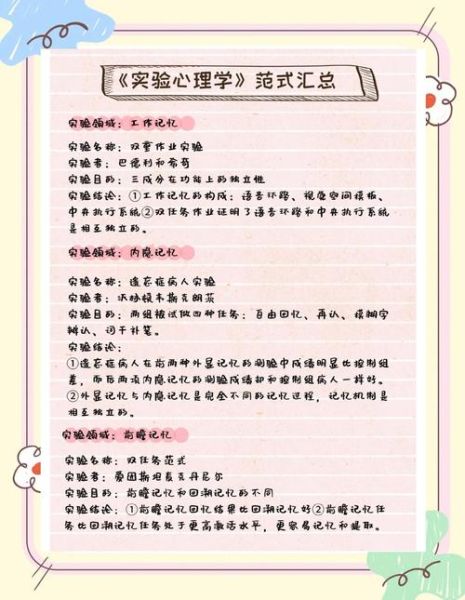 《实验心理学》范式汇总
实验领域：工作记忆
实验名称：双重作业实验
实验者：巴德利和希奇
实验目的：三成分在功能上的独立性
实验结论：①工作记忆的构成：语音环路、视觉空间模板、
中央执行系统②双任务作业证明了语音环路和中央执行系统
是相互独立的。
实验领域：内隐记忆
实验名称：遗忘症病人实验
实验者：沃林顿韦斯克朗茨
实验目的：两组被试做四种任务：自由回忆、再认、模糊字
辨认、词干补笔。
实验结论：
①遗忘症病人在前两种外显记忆的测验中成绩明显比控制组
差，而后两项内隐记忆的测验成绩却和控制组病人一样好。
②外显记忆与内隐记忆是完全不同的记忆过程，记忆机制是
相互独立的。
实验领域：前瞻记忆
实验名称：双任务范式
实验者：爱因斯坦麦克丹尼尔
实验目的：前瞻记忆和回溯记忆的不同
实验结论：①前瞻记忆回忆结果比回溯记忆好②前瞻记忆任
务比回溯记忆任务处于更高激活水平，更容易记忆和提取。